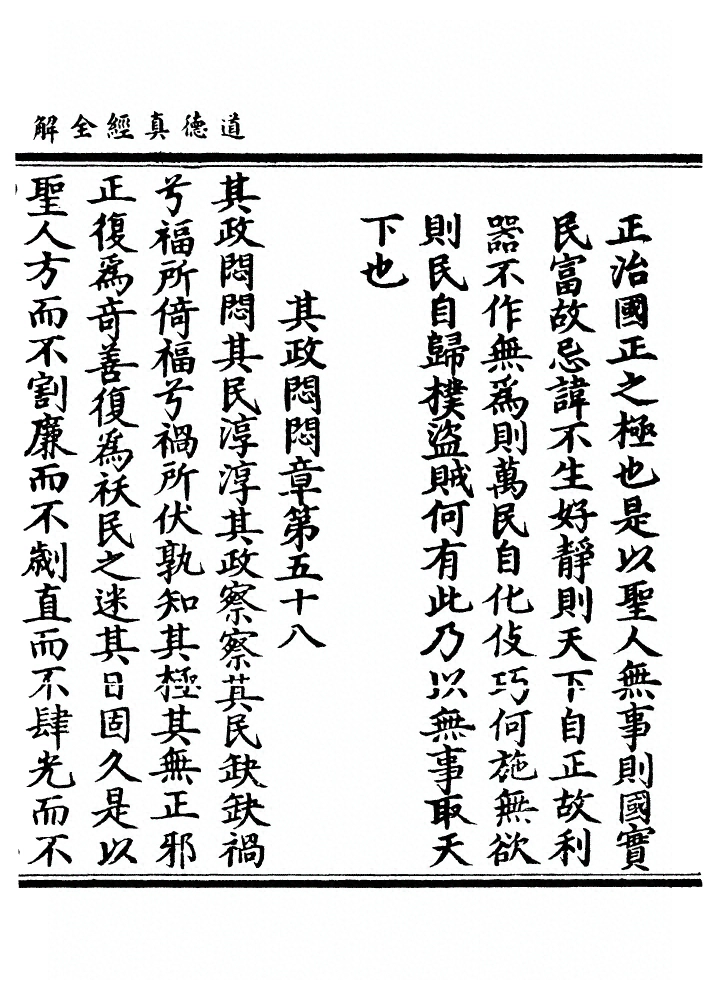 道德真經全解
正治國正之極也是以聖人無事則國實
民富故忌諱不生好靜則天下自正故利
器不作無為則萬民自化伎巧何施無欲
則民自歸樸盜賊何有此乃以無事取天
下也
其政悶悶章第五十八
其政悶悶其民淳淳其政察察其民缺缺禍
兮福所倚福兮禍所伏孰知其極其無正邪
正復為奇善復為祅民之迷其日固久是以
聖人方而不割廉而不劌直而不肆光而不